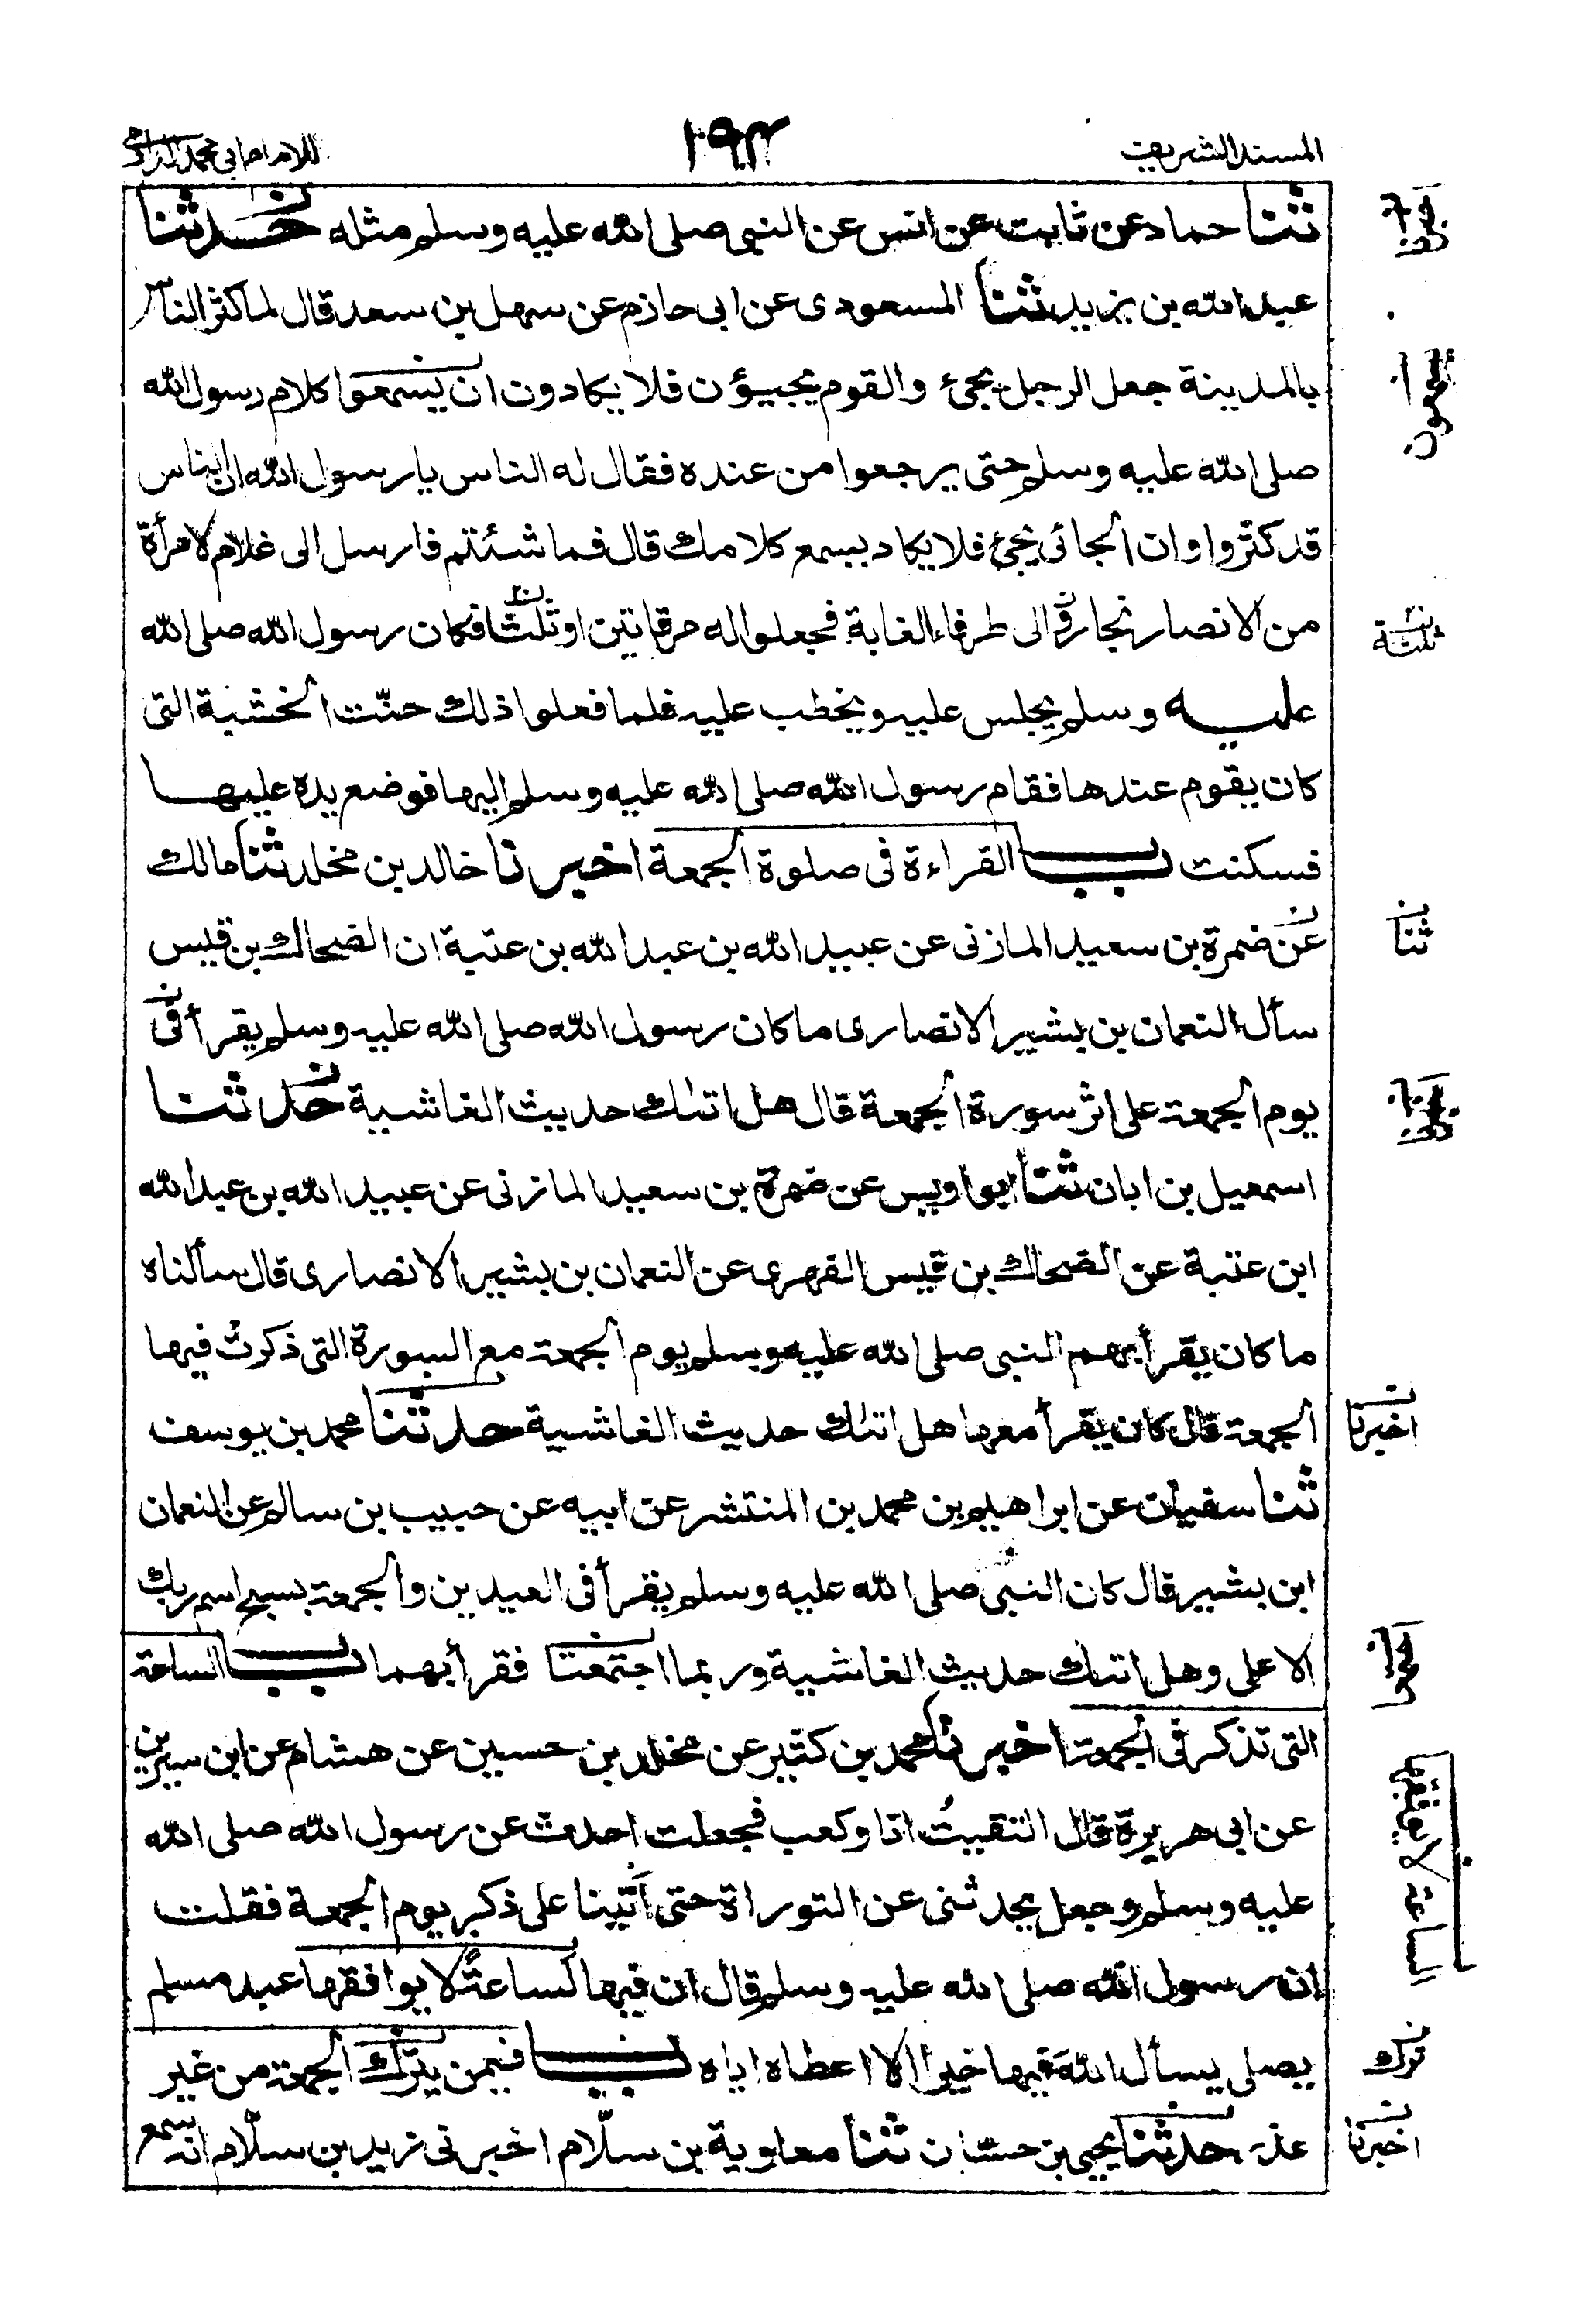 المسند الشريف
١٩٣
للامام ابى محمد الدارمى
ثنا حماد عن ثابت عن انس عن النبى صلى الله عليه وسلم مثله حدثنا
عبد الله بن يزيد ثنا المسعودى عن ابى حازم عن سهل بن سعد قال لما كثر الناس
بالمدينة جعل الرجل يجئ والقوم يجيؤن فلا يكادون ان يسمعوا كلام رسول الله
صلى الله عليه وسلم حتى يرجعوا من عنده فقال له الناس يا رسول الله ان الناس
قد كثروا وان الجائى يجئ فلا يكاد يسمع كلامك قال فما شئتم فارسل الى غلام لامرأة
من الانصار نجار والى طرفاء الغابة فجعلوا له مرقاتين او ثلثا فكان رسول الله صلى الله
عليه وسلم يجلس عليه ويخطب عليه فلما فعلوا ذلك حنّت الخشبة التى
كان يقوم عندها فقام رسول الله صلى الله عليه وسلم اليها فوضع يده عليها
فسكنت باب القراءة فى صلوة الجمعة اخبرنا خالد بن مخلد ثنا مالك
عن ضمرة بن سعيد المازنى عن عبيد الله بن عبد الله بن عتبة ان الضحاك بن قيس
سأل النعمان بن بشير الانصارى ما كان رسول الله صلى الله عليه وسلم يقرأ فى
يوم الجمعة على اثر سورة الجمعة قال هل اتىك حديث الغاشية حدثنا
اسمعيل بن ابان ثنا ابو اويس عن ضمرة بن سعيد المازنى عن عبيد الله بن عبد الله
ابن عتبة عن الضحاك بن قيس الفهرى عن النعمان بن بشير الانصارى قال سألناه
ما كان يقرأ بهم النبى صلى الله عليه وسلم يوم الجمعة مع السورة التى ذكرت فيها
الجمعة قال كان يقرأ معها هل اتىك حديث الغاشية حدثنا محمد بن يوسف
ثنا سفيان عن ابراهيم بن محمد بن المنتشر عن ابيه عن حبيب بن سالم عن النعمان
ابن بشير قال كان النبى صلى الله عليه وسلم يقرأ فى العيدين والجمعة بسبح اسم ربك
الاعلى وهل اتىك حديث الغاشية وربما اجتمعتا فقرأ بهما باب الساعة
التى تذكر فى الجمعة اخبرنا محمد بن كثير عن مخلد بن حسين عن هشام عن ابن سيرين
عن ابى هريرة قال التقيتُ انا وكعب فجعلت احدث عن رسول الله صلى الله
عليه وسلم وجعل يحدثنى عن التوراة حتى أتينا على ذكر يوم الجمعة فقلت
ان رسول الله صلى الله عليه وسلم قال ان فيها لساعةً لا يوافقها عبد مسلم
يصلى يسأل اللهَ فيها خيرا الا اعطاه اياه باب فيمن يترك الجمعة من غير
عذر حدثنا يحيى بن حسّان ثنا معاوية بن سلّام اخبرنى زيد بن سلّام انه سمع
يسمعون
ثلثة
ثنا
اخبرنا
اجتمعا
الساعة لا يوافقها
ترك
اخبرنا